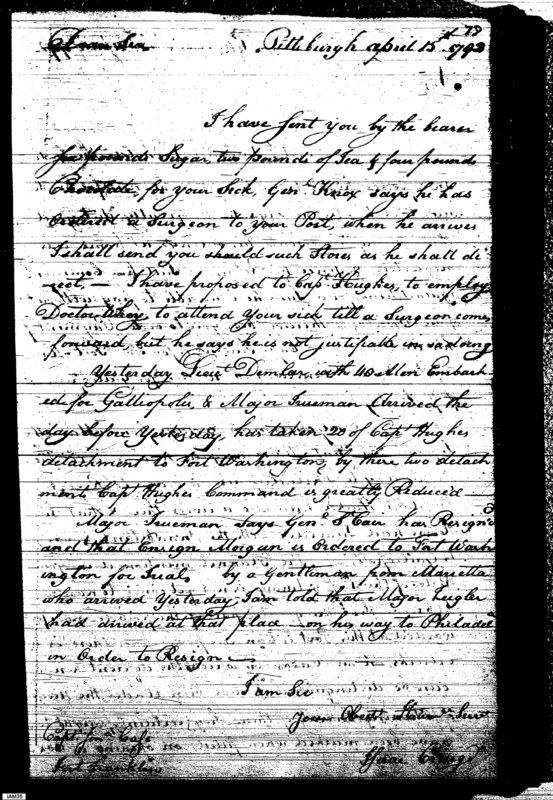 78
Dear Sir
Pittsburgh april 15th 1792
I have sent you by the bearer
six pounds Sugar, two pounds of Tea & four pounds
Chocolate for your Sick, Genl. Knox says he has
ordered a Surgeon to your Post, when he arrives
I shall send you should such Stores as he shall di
rect, — I have proposed to Capt Hughes, to employ
Doctor to attend your sick till a Surgeon comes
forward, but he says he is not justifiable in so doing
Yesterday Lieut Demler with 40 Men Embark
ed for Galliopolis, & Major Trueman Arrived the
day before Yesterday, has taken 20 of Capt Hughes
detachment to Fort Washington, by these two detach
ment Capt Hughes Command is greatly Reduced
Major Trueman says Genl St Clair has Resign'd
and that Ensign Morgan is Ordered to Fort Wash
ington for Trial, by a Gentleman from Marietta
who arrived Yesterday I am told that Major Zeigler
had arrived at that place on his way to Philadela
in Order to Resign —
I am Sir
your Obedt Humb Serv
Capt Jona Cass
Fort Franklin
Isaac Craig
IAM35